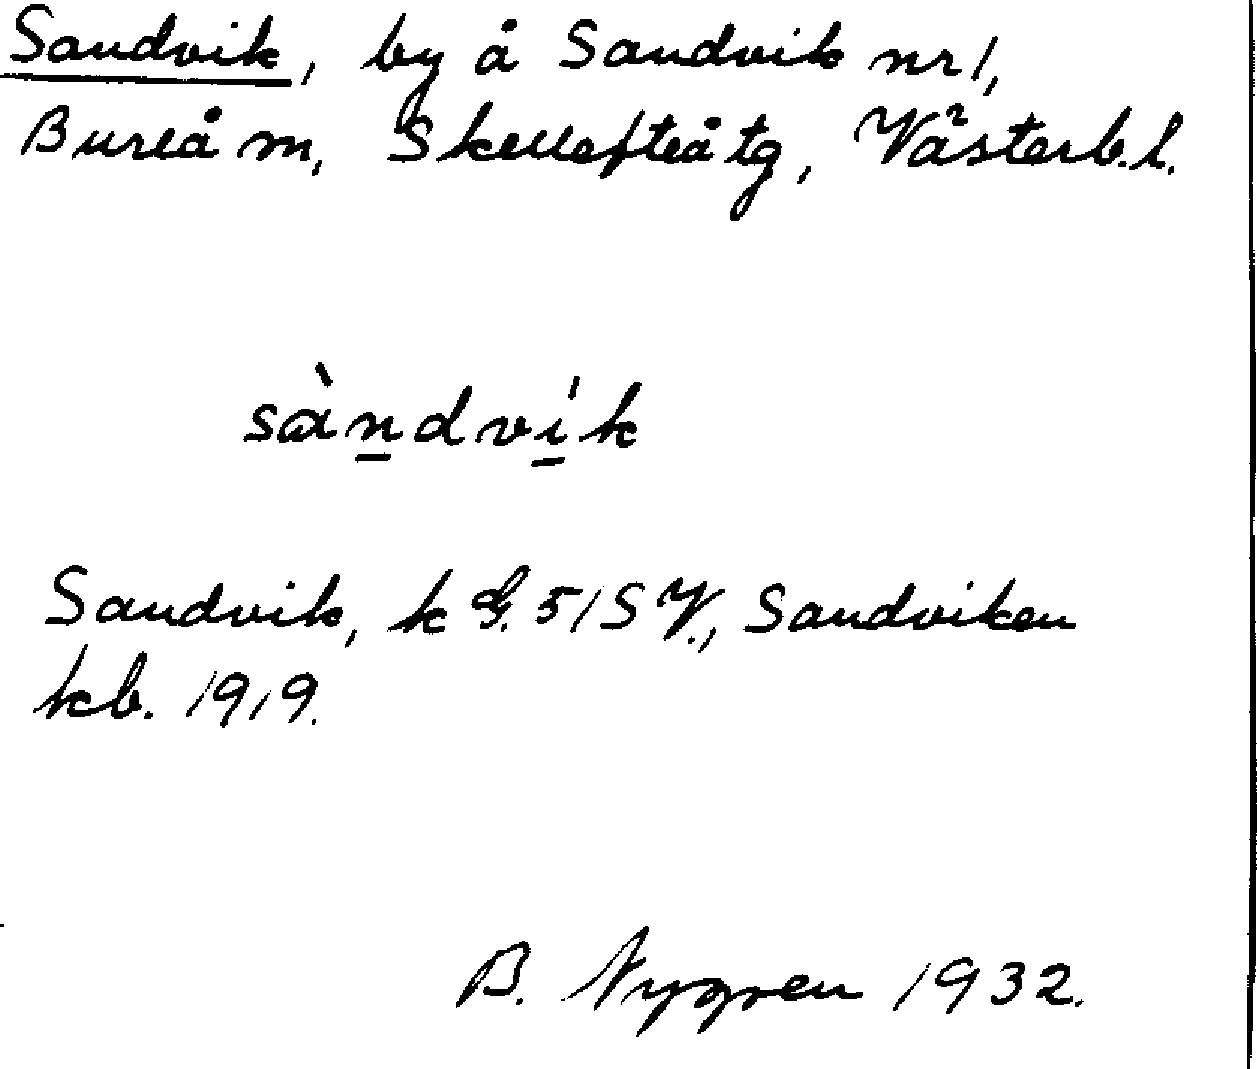 Sandvik, by å Sandvik nr 1,
Bureå m, Skellefteå tg, Västerb.l.
sàndvík
Sandvik, k G. 51 S V., Sandviken
kb. 1919.
B. Nygren 1932.